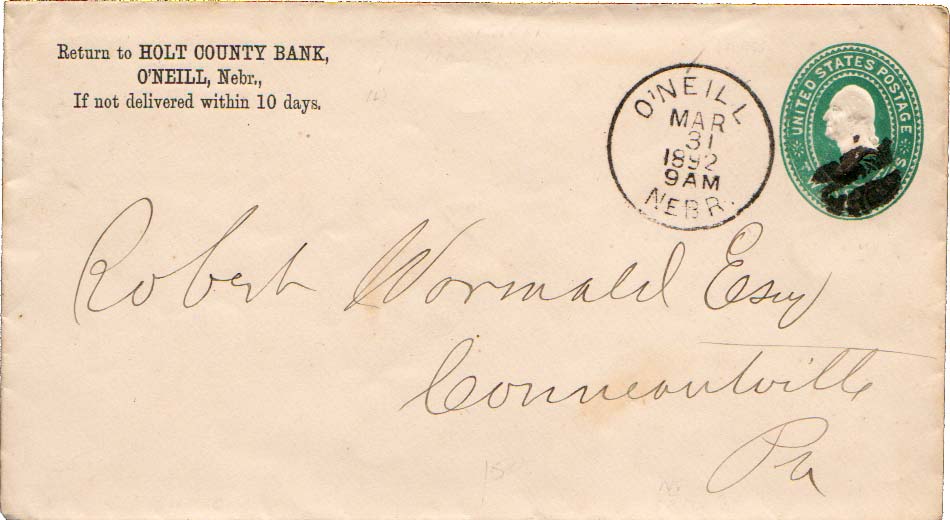 Return to HOLT COUNTY BANK,
O'NEILL, Nebr.,
If not delivered within 10 days.
O'NEILL
MAR
31
1892
9AM
NEBR.
UNITED STATES POSTAGE
Robert Wormald Esq
Conneautville
Pa